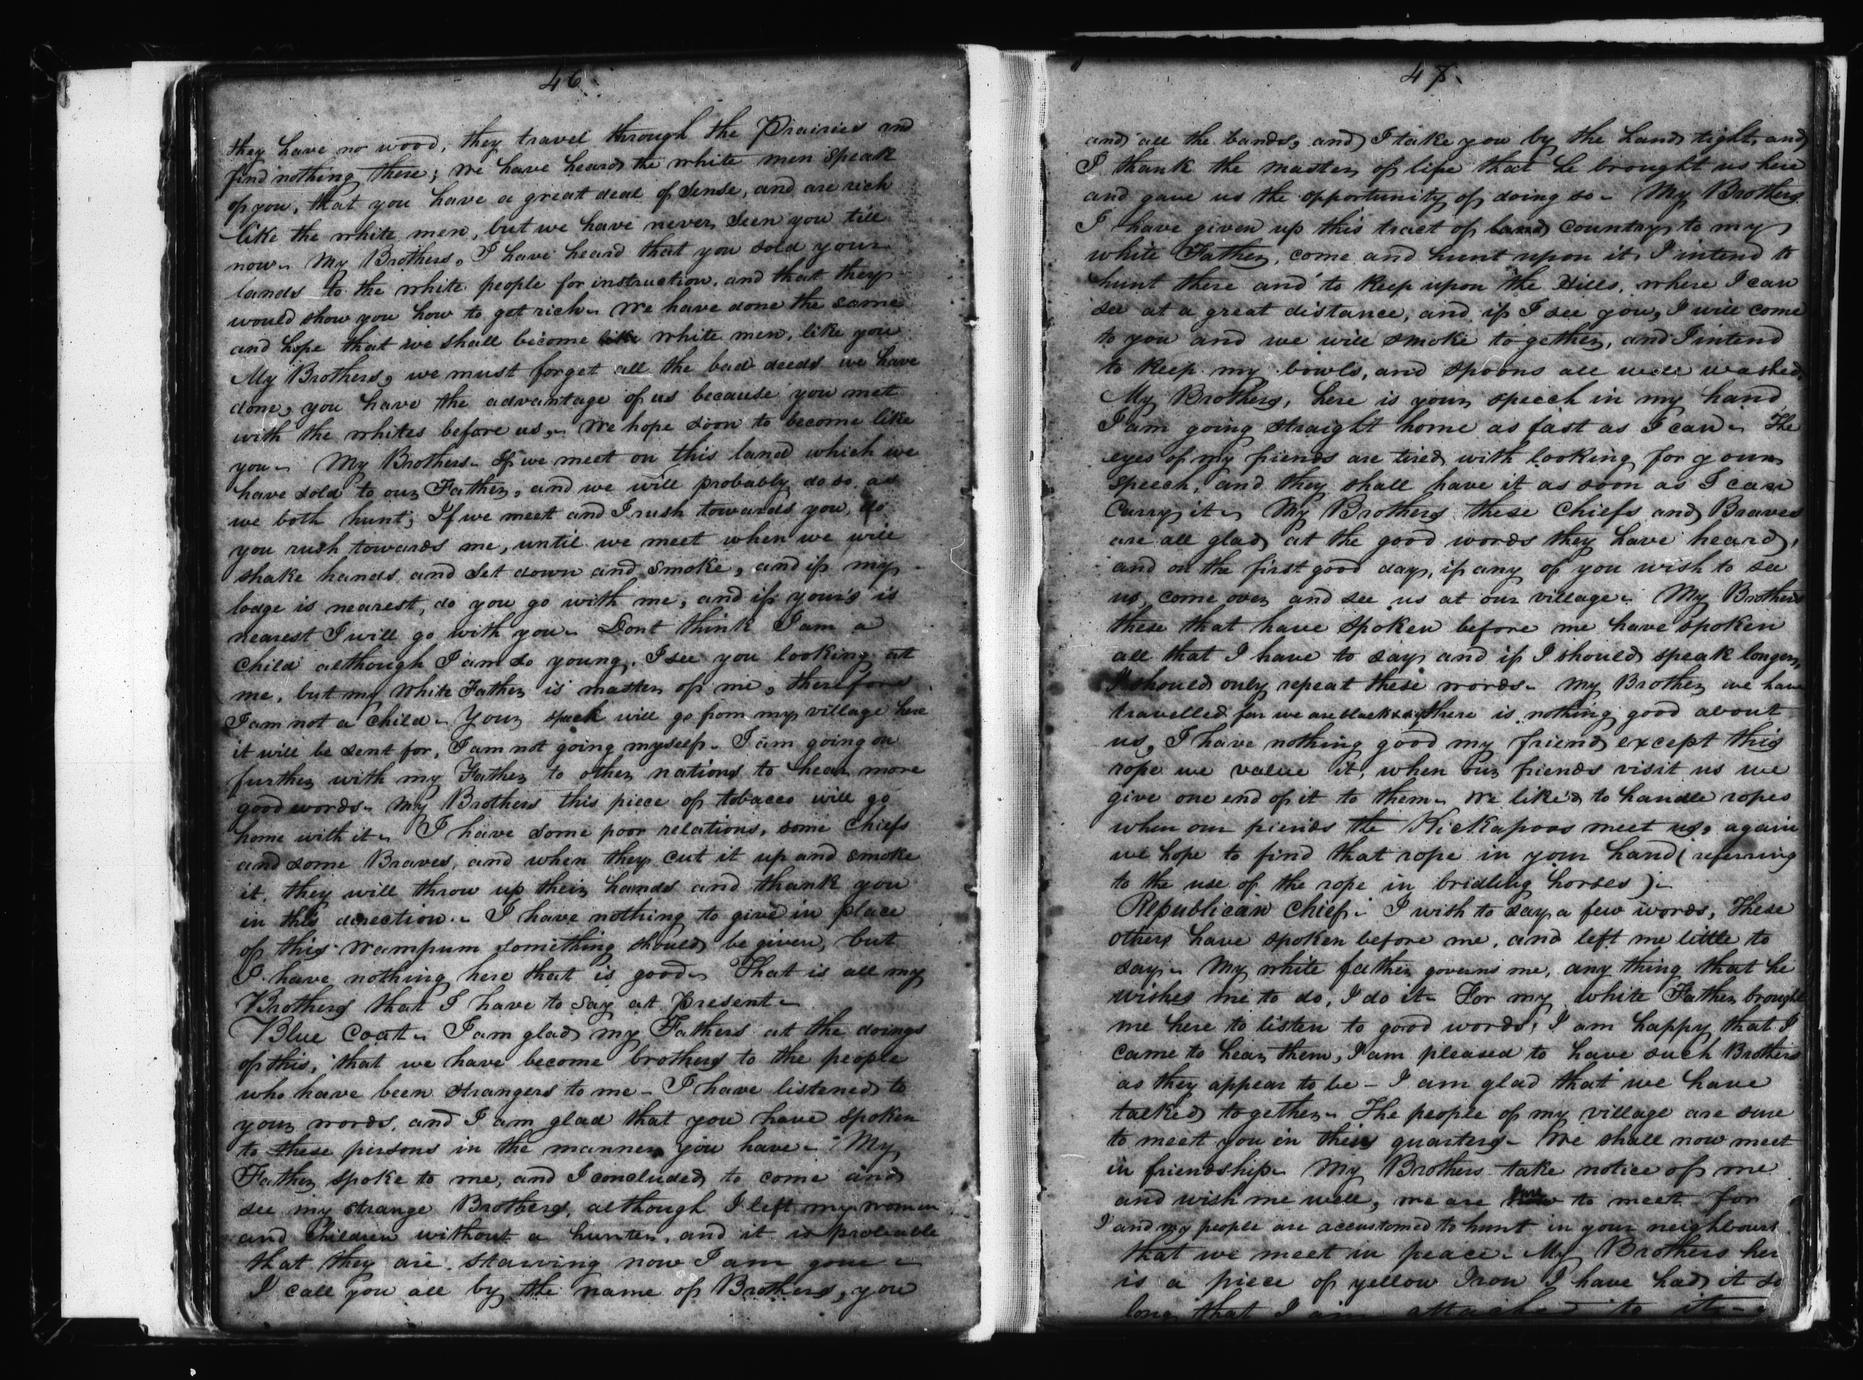 46.
they have no wood, they travel through the Prairies and
find nothing there; We have heard the white men speak
of you, that you have a great deal of sense, and are rich
like the white men, but we have never seen you till
now. My Brothers, I have heard that you sold your
lands to the white people for instruction, and that they
would show you how to get rich. We have done the same
and hope that we shall become like white men, like you
My Brothers, we must forget all the bad deeds we have
done, you have the advantage of us because you met
with the whites before us. We hope soon to become like
you. My Brothers. If we meet on this land which we
have sold to our Father, and we will probably do so, as
we both hunt; If we meet and I rush towards you, do
you rush towards me, until we meet when we will
shake hands, and set down and smoke, and if my
lodge is nearest, do you go with me, and if your's is
nearest I will go with you. Dont think I am a
child although I am so young. I see you looking at
me, but my White Father is master of me, therefore
I am not a child. Your speech will go from my village here
it will be sent for, I am not going myself. I am going on
further with my Father to other nations to hear more
good words. My Brothers this piece of tobacco will go
home with it. I have some poor relations, some Chiefs
and some Braves, and when they cut it up and smoke
it, they will throw up their hands and thank you
in this direction. I have nothing to give in place
of this wampum something should be given, but
I have nothing here that is good. That is all my
Brothers that I have to say at present.
Blue Coat. I am glad my Fathers at the doings
of this, that we have become brothers to the people
who have been strangers to me - I have listened to
your words, and I am glad that you have spoken
to these persons in the manner you have. My
Father spoke to me, and I concluded to come and
see my strange Brothers, although I left my women
and Children without a hunter, and it is probable
that they are starving now I am gone.
I call you all by the name of Brothers, you
47.
and all the bands, and I take you by the hand tight, and
I thank the master of life that he brought us here
and gave us the opportunity of doing so. My Brothers
I have given up this tract of land country to my
white Father, come and hunt upon it, I intend to
hunt there and to keep upon the Hills, where I can
see at a great distance, and if I see you, I will come
to you and we will smoke together, and I intend
to keep my bowls, and spoons all well washed.
My Brothers, here is your speech in my hand
I am going straight home as fast as I can. The
eyes of my friends are tired with looking for your
speech, and they shall have it as soon as I can
carry it. My Brothers these Chiefs and Braves
are all glad at the good words they have heard,
and on the first good day, if any of you wish to see
us, come over and see us at our village. My Brothers
these that have spoken before me have spoken
all that I have to say and if I should speak longer,
I should only repeat these words. My Brother we have
travelled far we are black there is nothing good about
us, I have nothing good my friend except this
rope we value it, when our friends visit us we
give one end of it to them. We like to handle ropes
when our friends the Kickapoos meet us, again
we hope to find that rope in your hand (referring
to the use of the rope in bridling horses).
Republican Chief. I wish to say a few words, These
others have spoken before me, and left me little to
say. My white father governs me, any thing that he
wishes me to do, I do it. For my white Father brought
me here to listen to good words, I am happy that I
came to hear them, I am pleased to have such Brothers
as they appear to be - I am glad that we have
talked together. The people of my village are sure
to meet you in their quarters. We shall now meet
in friendship. My Brothers take notice of me
and wish me well, we are sure to meet for
I and my people are accustomed to hunt in your neighbours
that we meet in peace. My Brothers her
is a piece of yellow Iron I have had it so
long that I am attached to it